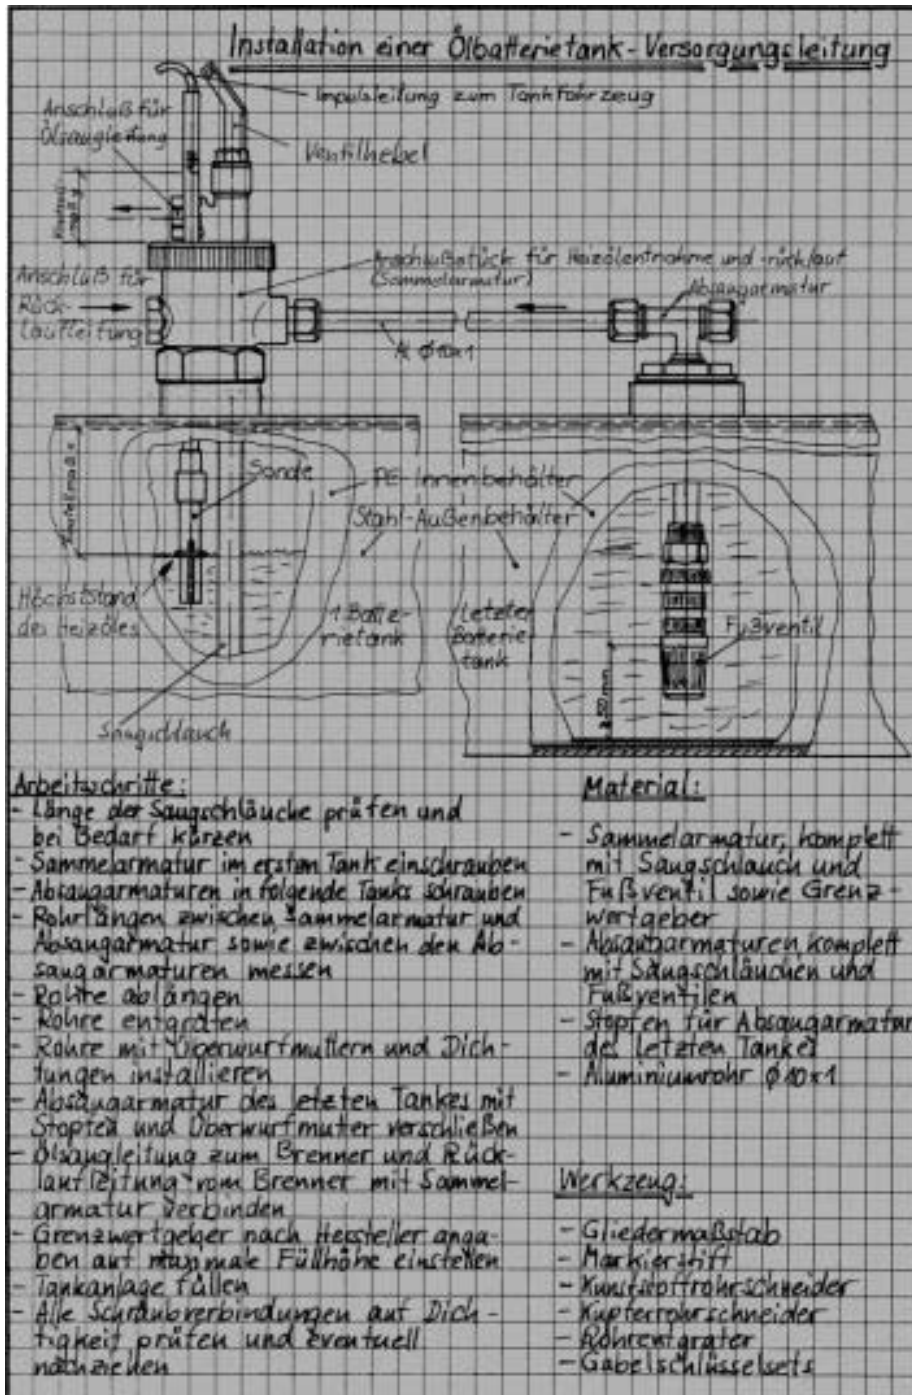 Installation einer Ölbatterietank-Versorgungsleitung
Impulsleitung zum Tankfahrzeug
Anschluß für
Ölsaugleitung
Ventilhebel
Anschlußstück für Heizölentnahme und -rücklauf
(Sammelarmatur)
Absaugarmatur
Anschluß für
Rück-
laufleitung
Al Ø10x1
Sonde
PE-Innenbehälter
Stahl-Außenbehälter
Einstellmaß x
Höchststand
des Heizöles
1. Batte-
rietank
Letzter
Batterie-
tank
Fußventil
Saugschlauch
Arbeitsschritte:
- Länge der Saugschläuche prüfen und
bei Bedarf kürzen
- Sammelarmatur im ersten Tank einschrauben
- Absaugarmaturen in folgende Tanks schrauben
- Rohrlängen zwischen Sammelarmatur und
Absaugarmatur sowie zwischen den Ab-
saugarmaturen messen
- Rohre ablängen
- Rohre entgraten
- Rohre mit Überwurfmuttern und Dich-
tungen installieren
- Absaugarmatur des letzten Tankes mit
Stopfen und Überwurfmutter verschließen
- Ölsaugleitung zum Brenner und Rück-
laufleitung vom Brenner mit Sammel-
armatur verbinden
- Grenzwertgeber nach Herstelleranga-
ben auf maximale Füllhöhe einstellen
- Tankanlage füllen
- Alle Schraubverbindungen auf Dich-
tigkeit prüfen und eventuell
nachziehen
Material:
- Sammelarmatur, komplett
mit Saugschlauch und
Fußventil sowie Grenz-
wertgeber
- Absaugarmaturen komplett
mit Saugschläuchen und
Fußventilen
- Stopfen für Absaugarmatur
des letzten Tankes
- Aluminiumrohr Ø10x1
Werkzeug:
- Gliedermaßstab
- Markierstift
- Kunststoffrohrschneider
- Kupferrohrschneider
- Rohrentgrater
- Gabelschlüsselsets